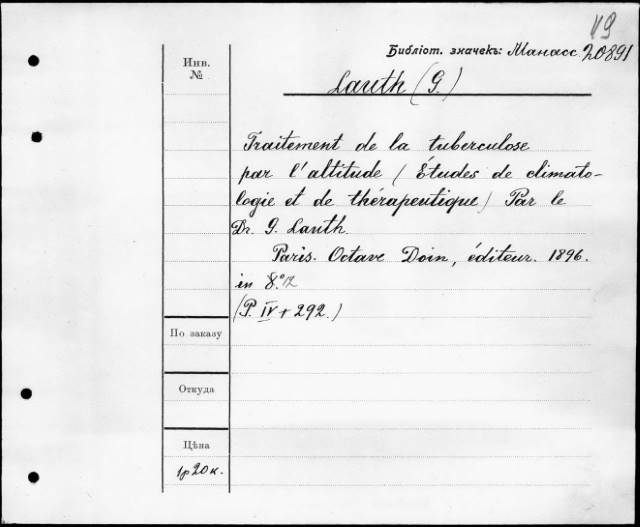 V9
Библіот. значекъ: Манасс. 20891
Инв.
№
Lauth (G.)
Traitement de la tuberculose
par l'altitude (Études de climato-
logie et de thérapeutique) Par le
Dr. G. Lauth.
Paris. Octave Doin, éditeur. 1896.
in 8.º 12
(P. IV + 292.)
По заказу
Откуда
Цѣна
1р 20 к.